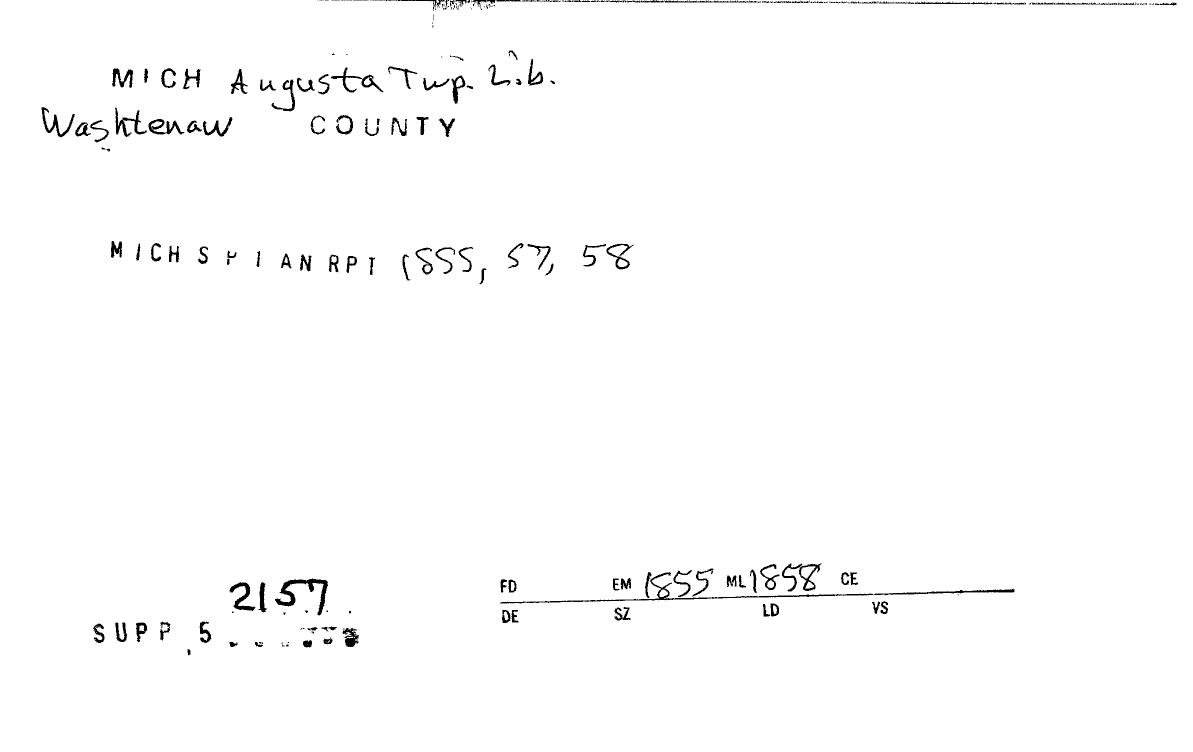 MICH Augusta Twp. Lib.
Washtenaw COUNTY
MICH S P I AN RPT 1855, 57, 58
2157
SUPP 5
FD EM 1855 ML 1858 CE
DE SZ LD VS